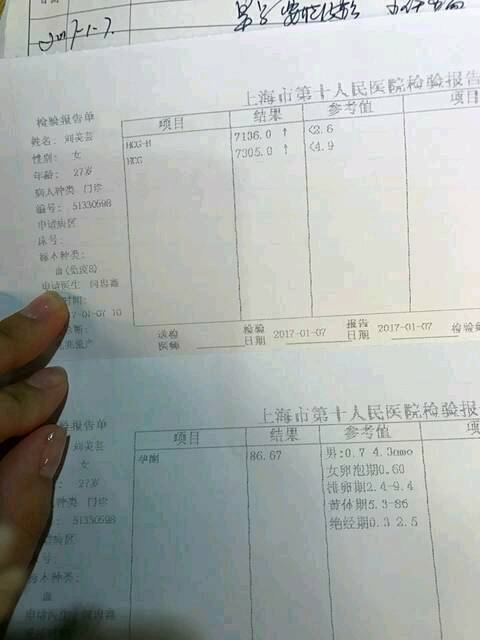 2017-1-7.
上海市第十人民医院检验报告
检验报告单
项目 结果 参考值 项目
姓名: 刘英芸
HCG-H 7136.0 ↑ <2.6
性别: 女
HCG 7305.0 ↑ <4.9
年龄: 27岁
病人种类 门诊
编号: 51330598
申请病区
床号:
标本种类:
血(免疫8)
申请医生
01-07 10
送检 检验 2017-01-07 报告 2017-01-07 检验
医师 日期 日期
上海市第十人民医院检验报
验报告单
项目 结果 参考值
刘英芸
孕酮 86.67 男:0.7 4.3nmo
女
女卵泡期0.60
27岁
排卵期2.4-9.4
种类 门诊
黄体期5.3-86
51330598
绝经期0.3 2.5
申请病区
号:
标本种类:
血
申请医生